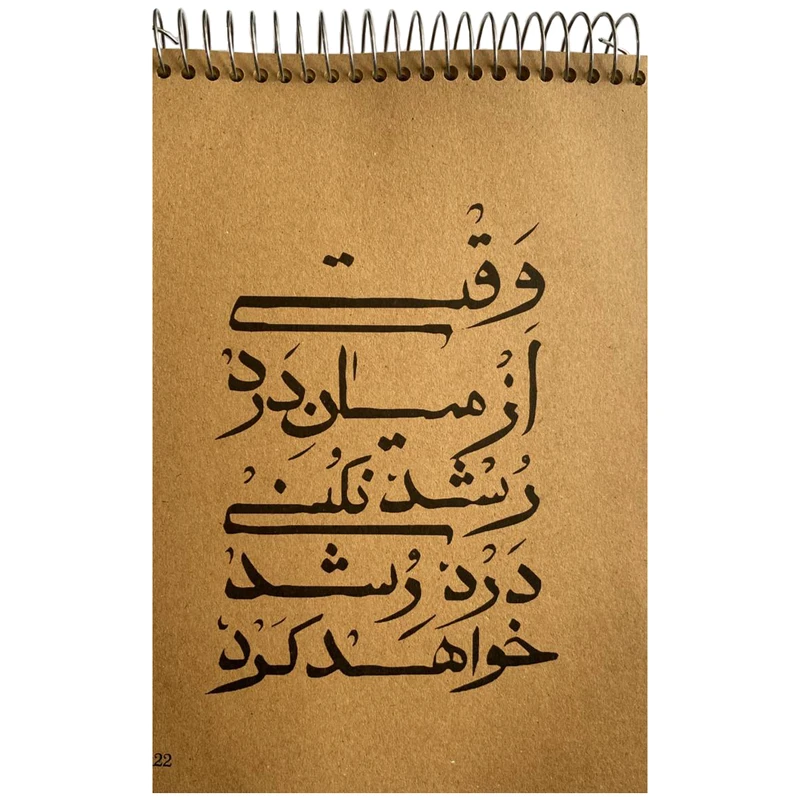 وَقْتی
اَزْ میانِ دَرْد
رُشْد نَکُنی
دَرْد رُشد
خواهَد کَرْد
22